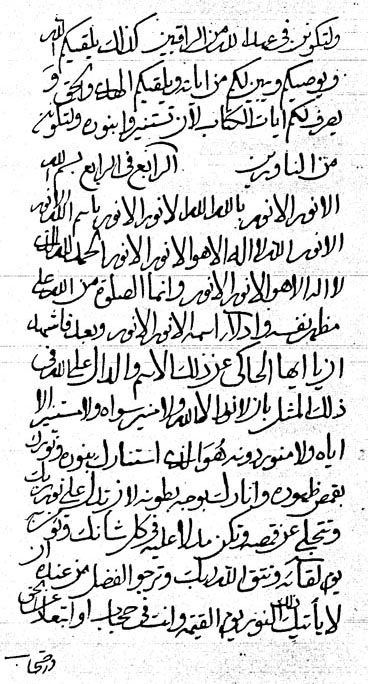 ولتكونن في عماء الله من الراقين كذلك يلقيكم الله
ويوصيكم ويبين لكم من اياته ويلقيكم الهدى والحق و
يعرفكم ايات الكتاب لان تستنير وابنوره ولتكونن
من الناورين الرابع في الرابع بسم الله
الانور الانور بالله الله الانور الانور باسم الله الانور
الانور الله لا اله الا هو الانور الانور الحمد لله الذي
لا اله الا هو الانور الانور وانما الصلوة من الله على
مظهر نفسه وادلاء اسمه الانور الانور وبعد فاشهد
ان يا ايها الحاكي عن ذلك الاسم والدال على الله في
ذلك المثل بان لا نور الا لله ولا منير سواه ولا مستنير الا
اياه ولا منور دونه هو الذي استنارك بنوره ونورك
بقمص ظهوره وانارك بوجه بطونه لان تدل على نور ربك
وتتجلى عن قمصه وتكن مدلا عليه في كل شأنك وتوقن
يوم لقائه وتتق الله ربك وترجو الفضل من عنده ان
لا يأتينك الله النور يوم القيمة وانت في حجاب او ابتعاد عن الحق